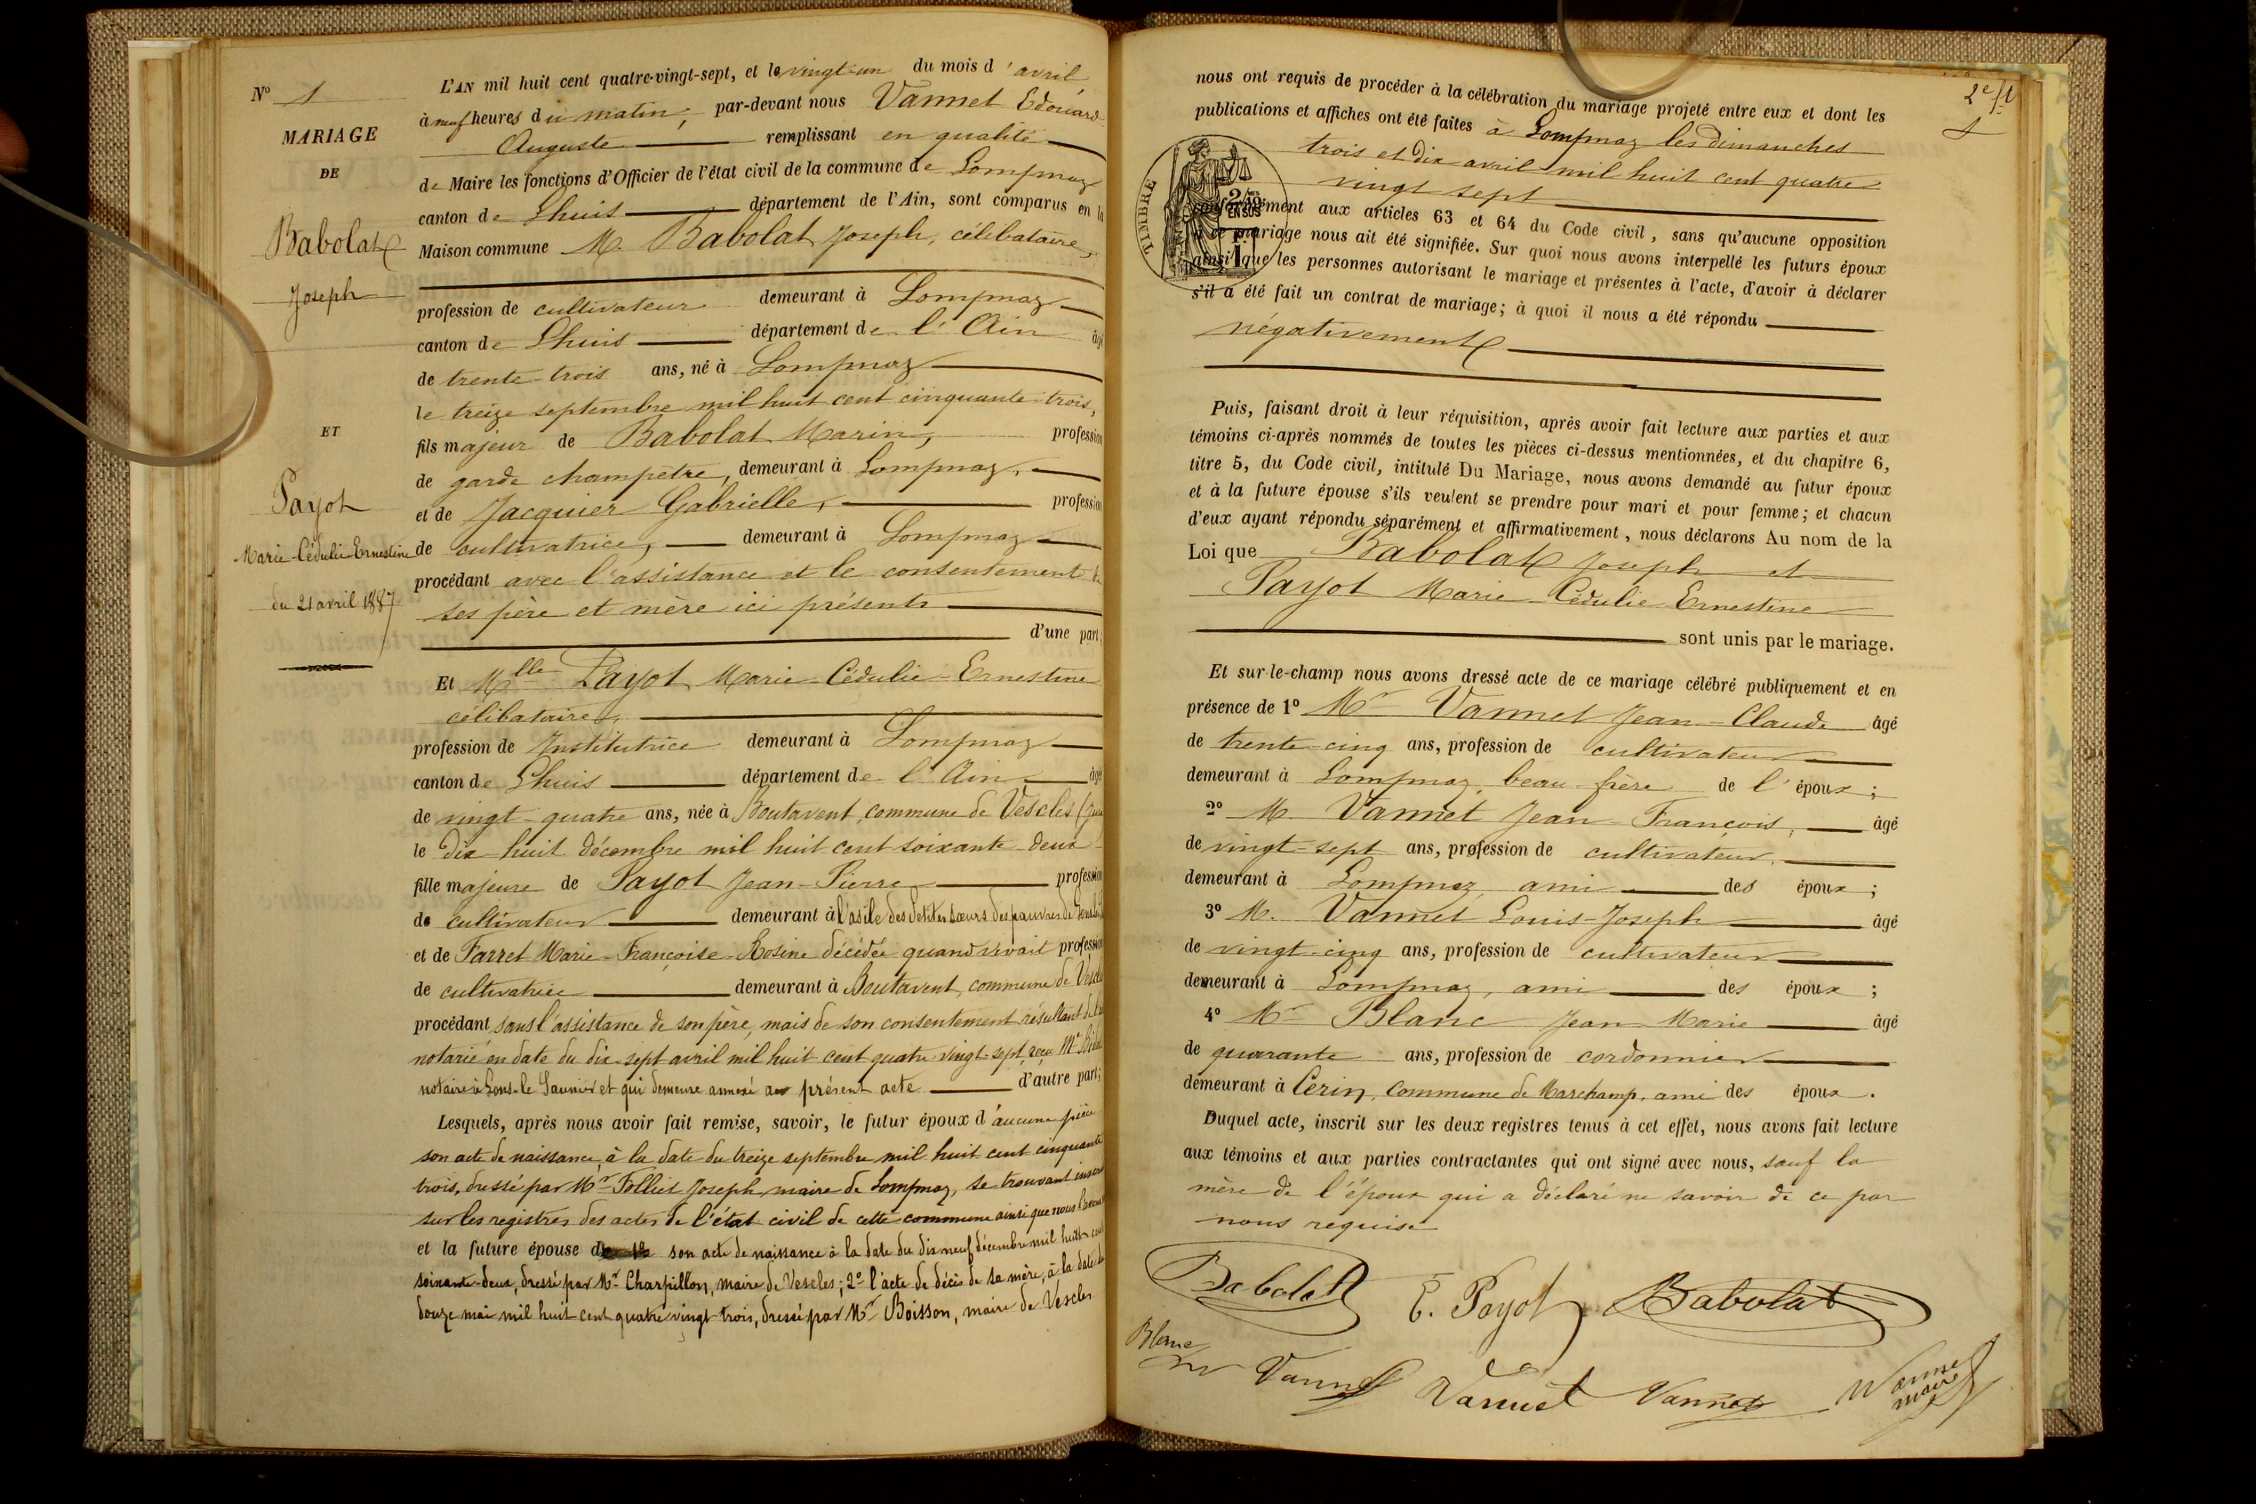 N° 1
MARIAGE
DE
Babolat
Joseph
ET
Payot
Marie-Cédulie Ernestine
du 21 avril 1887
L'AN mil huit cent quatre-vingt-sept, et le vingt-un du mois d'avril
à neuf heures du matin, par-devant nous Vannet Edouard-
Auguste remplissant en qualité
de Maire les fonctions d'Officier de l'état civil de la commune de Lompnaz
canton de Lhuis département de l'Ain, sont comparus en la
Maison commune M. Babolat Joseph, célibataire,
profession de cultivateur demeurant à Lompnaz
canton de Lhuis département de l'Ain âgé
de trente-trois ans, né à Lompnaz
le treize septembre mil huit cent cinquante-trois,
fils majeur de Babolat Marin, profession
de garde champêtre, demeurant à Lompnaz,
et de Jacquier Gabrielle, profession
de cultivatrice, demeurant à Lompnaz
procédant avec l'assistance et le consentement de
ses père et mère ici présents
d'une part;
Et Mlle Payot Marie-Cédulie-Ernestine
célibataire,
profession de Institutrice demeurant à Lompnaz
canton de Lhuis département de l'Ain âgé
de vingt-quatre ans, née à Boutavent, commune de Vescles (Jura
le dix-huit décembre mil huit cent soixante-deux
fille majeure de Payot Jean-Pierre profession
de cultivateur demeurant à l'asile des Petites sœurs des pauvres de
et de Farret Marie-Françoise-Rosine décédée quand vivait profession
de cultivatrice demeurant à Boutavent, commune de Vescles
procédant sans l'assistance de son père, mais de son consentement résultant
notarié en date du dix-sept avril mil huit cent quatre-vingt-sept, reçu Mr
notaire à Lons-le-Saunier et qui demeure annexé au présent acte d'autre part;
Lesquels, après nous avoir fait remise, savoir, le futur époux d'aucune pièce
son acte de naissance, à la date du treize septembre mil huit cent cinquante
trois, dressé par Mr Folliet Joseph maire de Lompnaz, se trouvant inscrit
sur les registres des actes de l'état civil de cette commune ainsi que nous l'avons
et la future épouse son acte de naissance à la date du dix neuf décembre mil huit cent
soixante-deux, dressé par Mr Charpillon, maire de Vescles; 2° l'acte de décès de sa mère, à la date du
douze mai mil huit cent quatre vingt-trois, dressé par Mr Boisson, maire de Vescles
nous ont requis de procéder à la célébration du mariage projeté entre eux et dont les
publications et affiches ont été faites à Lompnaz les dimanches
trois et dix avril mil huit cent quatre
vingt sept
TIMBRE
conformément aux articles 63 et 64 du Code civil, sans qu'aucune opposition
à ce mariage nous ait été signifiée. Sur quoi nous avons interpellé les futurs époux
ainsi que les personnes autorisant le mariage et présentes à l'acte, d'avoir à déclarer
s'il a été fait un contrat de mariage; à quoi il nous a été répondu
négativement
Puis, faisant droit à leur réquisition, après avoir fait lecture aux parties et aux
témoins ci-après nommés de toutes les pièces ci-dessus mentionnées, et du chapitre 6,
titre 5, du Code civil, intitulé Du Mariage, nous avons demandé au futur époux
et à la future épouse s'ils veulent se prendre pour mari et pour femme; et chacun
d'eux ayant répondu séparément et affirmativement, nous déclarons Au nom de la
Loi que Babolat Joseph et
Payot Marie-Cédulie-Ernestine
sont unis par le mariage.
Et sur-le-champ nous avons dressé acte de ce mariage célébré publiquement et en
présence de 1° Mr Vannet Jean-Claude âgé
de trente-cinq ans, profession de cultivateur
demeurant à Lompnaz, beau-frère de l'époux;
2° M. Vannet Jean-François, âgé
de vingt-sept ans, profession de cultivateur,
demeurant à Lompnaz, ami des époux;
3° M. Vannet Louis-Joseph âgé
de vingt-cinq ans, profession de cultivateur
demeurant à Lompnaz, ami des époux;
4° Mr Blanc Jean Marie âgé
de quarante ans, profession de cordonnier
demeurant à Cerin, commune de Marchamp, ami des époux.
Duquel acte, inscrit sur les deux registres tenus à cet effet, nous avons fait lecture
aux témoins et aux parties contractantes qui ont signé avec nous, sauf la
mère de l'époux qui a déclaré ne savoir de ce par
nous requise
Babolat E. Payot Babolat
Blanc Vannet Vannet Vannet Vannet
maire